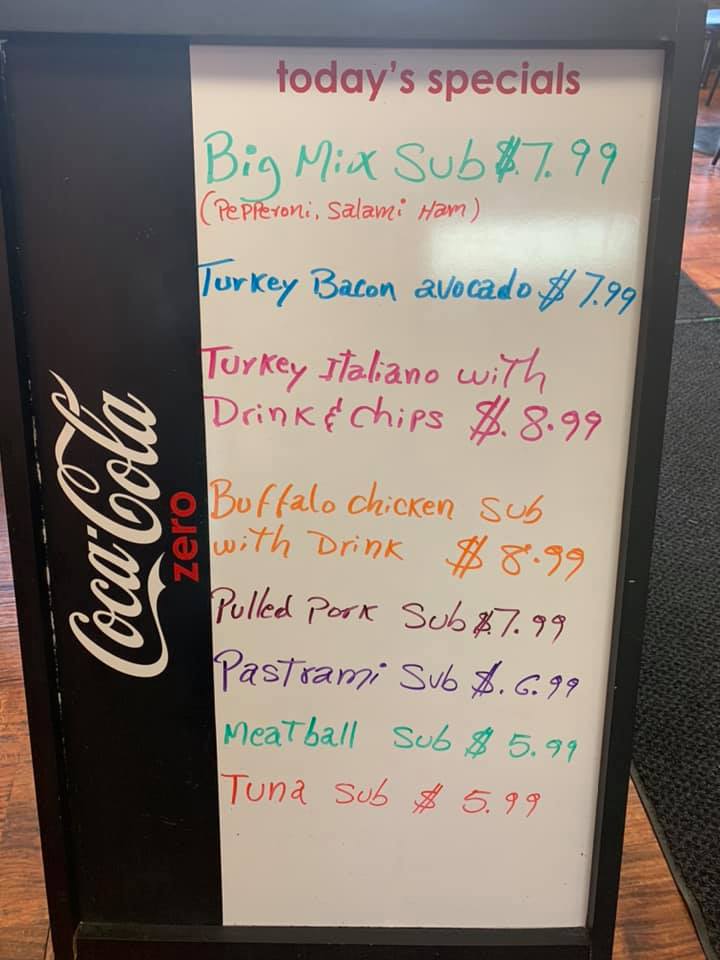 today's specials
Big Mix Sub $7.99
(Pepperoni, Salami Ham)
Turkey Bacon avocado $7.99
Turkey Italiano with
Drink & chips $.8.99
Buffalo chicken Sub
with Drink $8.99
Pulled Pork Sub $7.99
Pastrami Sub $.6.99
Meatball Sub $5.99
Tuna Sub $5.99
Coca-Cola
zero